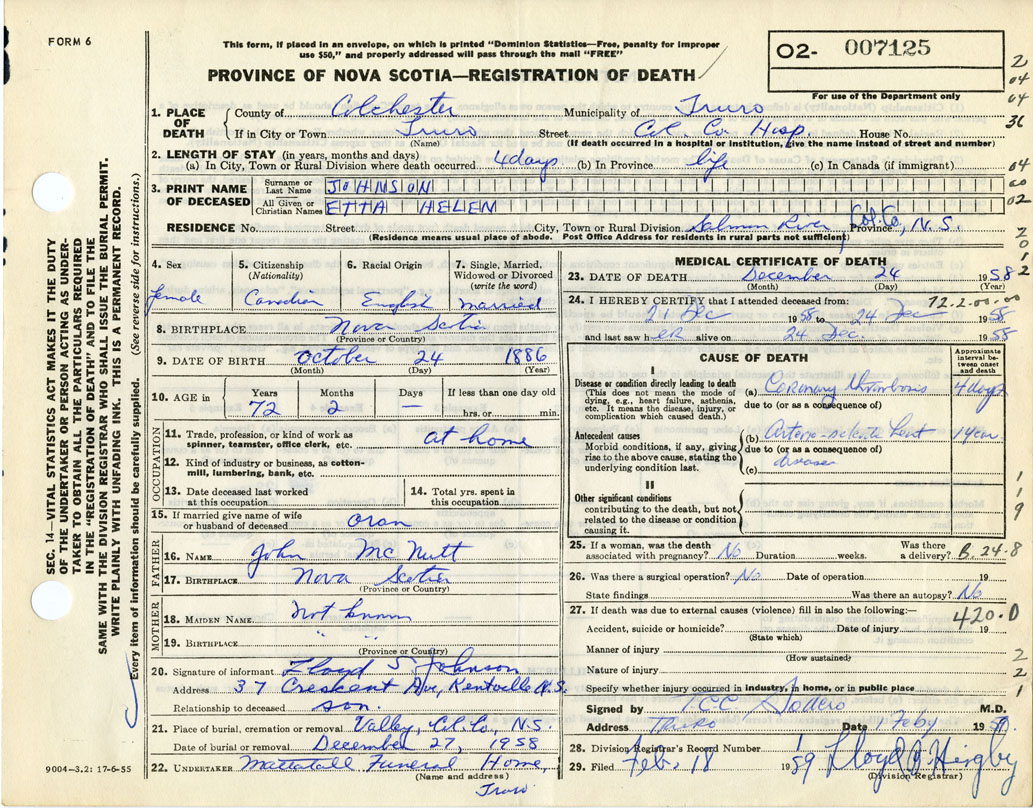 FORM 6
This form, if placed in an envelope, on which is printed "Dominion Statistics—Free, penalty for improper
use $50," and properly addressed will pass through the mail "FREE"
PROVINCE OF NOVA SCOTIA—REGISTRATION OF DEATH
O2- 007125
For use of the Department only
2
04
04
36
1. PLACE OF DEATH
County of Colchester Municipality of Truro
If in City or Town Truro Street Col. Co. Hosp. House No.
(Name) (If death occurred in a hospital or institution, give the name instead of street and number)
2. LENGTH OF STAY (in years, months and days)
(a) In City, Town or Rural Division where death occurred 4 days (b) In Province life (c) In Canada (if immigrant)
04
00
02
3. PRINT NAME OF DECEASED
Surname or Last Name JOHNSON
All Given or Christian Names ETTA HELEN
RESIDENCE No. Street City, Town or Rural Division Salmon River Col. Co, Province N.S.
(Residence means usual place of abode. Post Office Address for residents in rural parts not sufficient)
2
0
1
2
4. Sex female
5. Citizenship (Nationality) Canadian
6. Racial Origin English
7. Single, Married, Widowed or Divorced (write the word) married
8. BIRTHPLACE Nova Scotia
(Province or Country)
9. DATE OF BIRTH October 24 1886
(Month) (Day) (Year)
10. AGE in Years 72 Months 2 Days — If less than one day old
hrs. or min.
OCCUPATION
11. Trade, profession, or kind of work as spinner, teamster, office clerk, etc. at home
12. Kind of industry or business, as cotton-mill, lumbering, bank, etc.
13. Date deceased last worked at this occupation
14. Total yrs. spent in this occupation
15. If married give name of wife or husband of deceased Oran
FATHER
16. NAME John McNutt
17. BIRTHPLACE Nova Scotia
(Province or Country)
MOTHER
18. MAIDEN NAME Not known
19. BIRTHPLACE " "
(Province or Country)
20. Signature of informant Lloyd S. Johnson
Address 37 Crescent Ave, Kentville N.S.
Relationship to deceased son.
21. Place of burial, cremation or removal Valley, Col. Co., N.S.
Date of burial or removal December 27, 1958
22. UNDERTAKER Mattatall Funeral Home,
(Name and address)
Truro
MEDICAL CERTIFICATE OF DEATH
23. DATE OF DEATH December 24 1958
(Month) (Day) (Year)
24. I HEREBY CERTIFY that I attended deceased from: 72-2-00-00
21 Dec 1958 to 24 Dec 1958
and last saw her alive on 24 Dec. 1958
CAUSE OF DEATH
Approximate interval between onset and death
I
Disease or condition directly leading to death
(This does not mean the mode of dying, e.g., heart failure, asthenia, etc. It means the disease, injury, or complication which caused death.)
(a) Coronary thrombosis 4 days
due to (or as a consequence of)
Antecedent causes
Morbid conditions, if any, giving rise to the above cause, stating the underlying condition last.
(b) heart 1 year
due to (or as a consequence of)
disease
(c)
II
Other significant conditions
contributing to the death, but not related to the disease or condition causing it.
1
1
9
25. If a woman, was the death associated with pregnancy? No Duration weeks. Was there a delivery? B. 24-8
26. Was there a surgical operation? No Date of operation 19
State findings Was there an autopsy? No
27. If death was due to external causes (violence) fill in also the following:— 420.0
Accident, suicide or homicide? Date of injury 19
(State which)
Manner of injury 2
(How sustained)
Nature of injury 2
Specify whether injury occurred in industry, in home, or in public place 1
Signed by M.D.
Address Truro Date Feby 19
28. Division Registrar's Record Number 1
29. Filed Feb. 18 1959 Lloyd
(Division Registrar)
SEC. 14—VITAL STATISTICS ACT MAKES IT THE DUTY
OF THE UNDERTAKER OR PERSON ACTING AS UNDER-
TAKER TO OBTAIN ALL THE PARTICULARS REQUIRED
IN THE "REGISTRATION OF DEATH" AND TO FILE THE
SAME WITH THE DIVISION REGISTRAR WHO SHALL ISSUE THE BURIAL PERMIT.
WRITE PLAINLY WITH UNFADING INK. THIS IS A PERMANENT RECORD.
Every item of information should be carefully supplied. (See reverse side for instructions.)
9004—3.2: 17-6-55